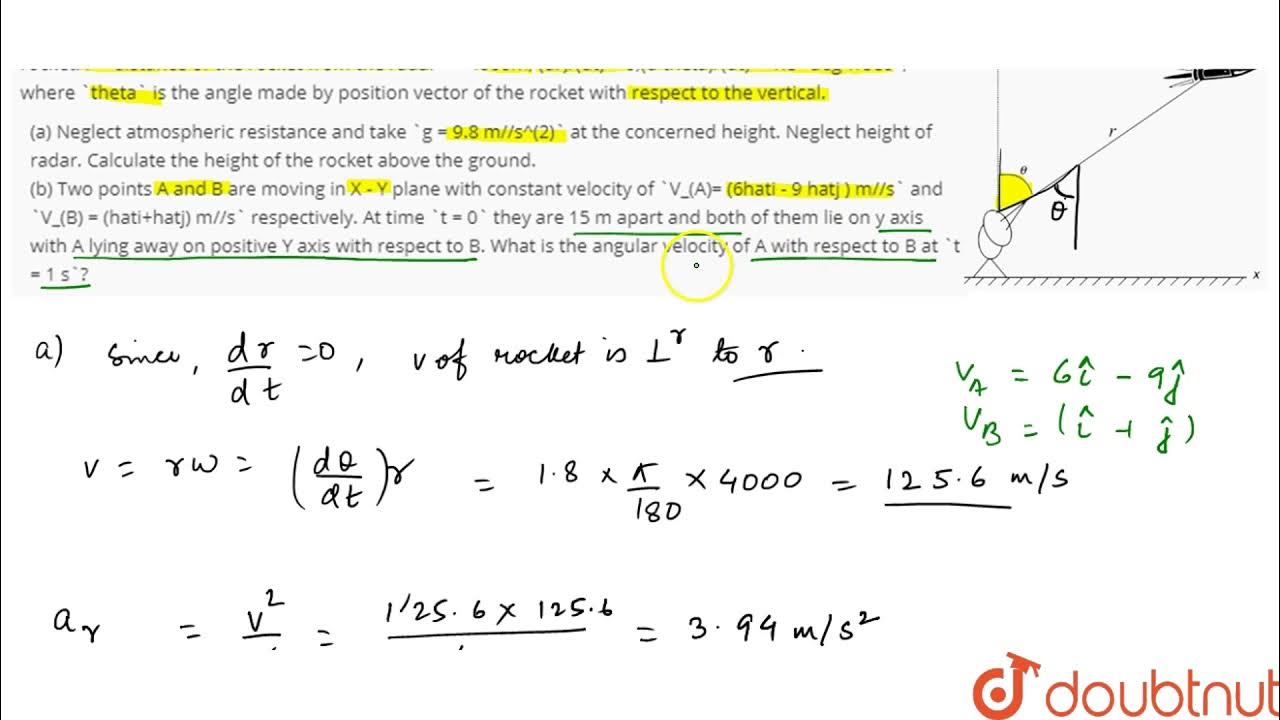 where `theta` is the angle made by position vector of the rocket with respect to the vertical.
(a) Neglect atmospheric resistance and take `g = 9.8 m//s^(2)` at the concerned height. Neglect height of
radar. Calculate the height of the rocket above the ground.
(b) Two points A and B are moving in X - Y plane with constant velocity of `V_(A)= (6hati - 9 hatj ) m//s` and
`V_(B) = (hati+hatj) m//s` respectively. At time `t = 0` they are 15 m apart and both of them lie on y axis
with A lying away on positive Y axis with respect to B. What is the angular velocity of A with respect to B at `t
= 1 s`?
r
θ
θ
x
a) Since, dr/dt =0, v of rocket is ⊥r to r.
V_A = 6î - 9ĵ
V_B = (î + ĵ)
v = rω = (dθ/dt)r = 1.8 × π/180 × 4000 = 125.6 m/s
a_r = v²/ = 125.6 × 125.6/ = 3.94 m/s²
doubtnut